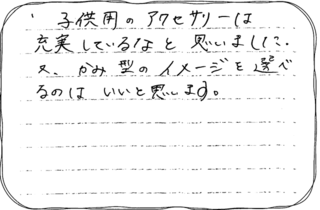 子供用のアクセサリーは
充実しているなと思いました。
又、かみ型のイメージを選べ
るのはいいと思います。